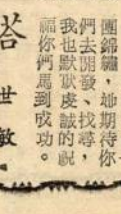 團錦繡，她期待你
們去開發、找尋，
我也默默虔誠的祝
福你們馬到成功。
塔世敏